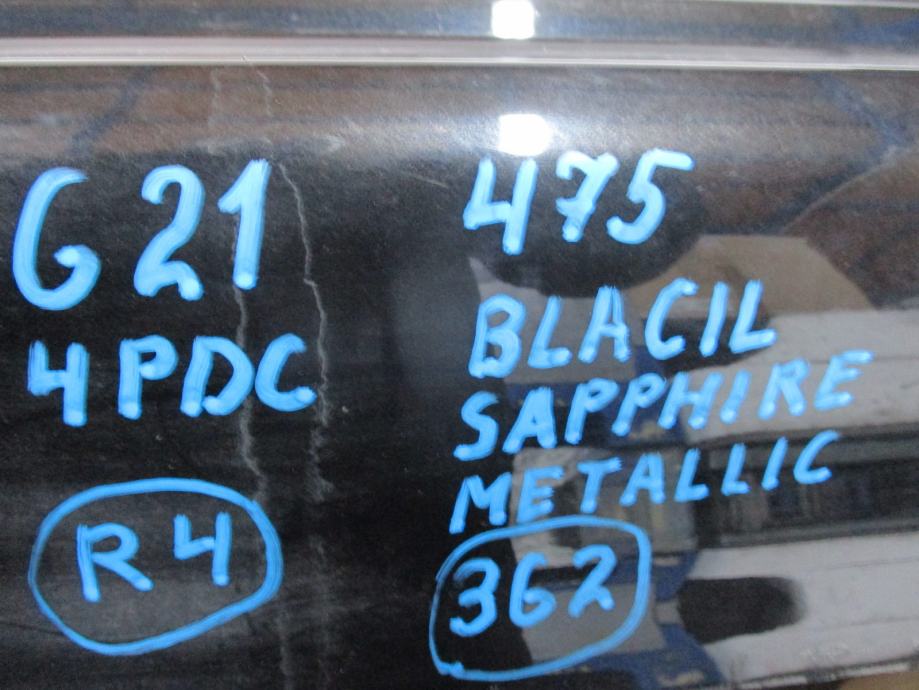 G21
4PDC
R4
475
BLACIL
SAPPHIRE
METALLIC
362